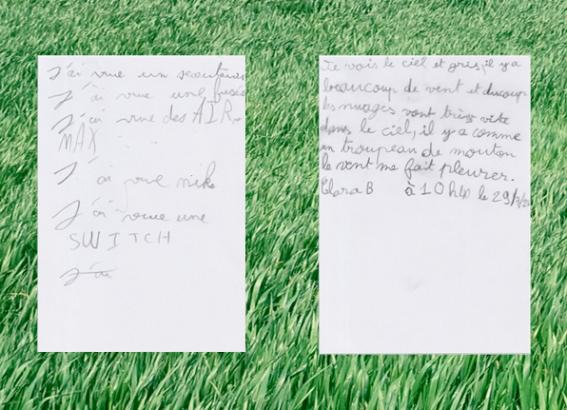 J'ai vue un
J'ai vue une fusée
J'ai vue des AIR
MAX
J'ai vue nike
J'ai vue une
SWITCH
J'ai
Je vois le ciel et gris, il y a
beaucoup de vent et ducoup
les nuages vont très vite
dans le ciel, il y a comme
un troupeau de mouton
le vent me fait pleurer.
Clara B à 10h40 le 29